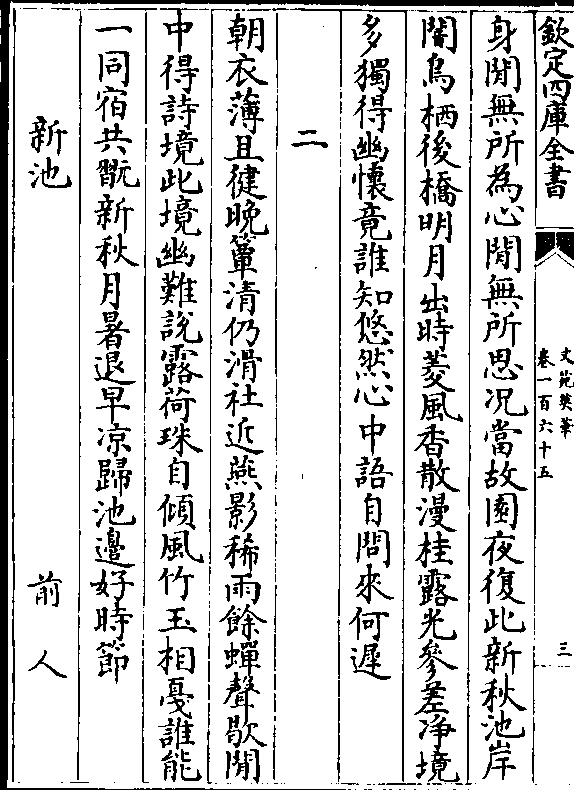 欽定四庫全書
文苑英華
卷一百六十五
三
身閒無所為心閒無所思况當故園夜復此新秋池岸
闇烏栖後橋明月出時菱風香散漫桂露光參差净境
多獨得幽懷竟誰知悠然心中語自問來何遲
二
朝衣薄且健晚簟清仍滑社近燕影稀雨餘蟬聲歇閒
中得詩境此境幽難說露荷珠自傾風竹玉相戞誰能
一同宿共翫新秋月暑退早凉歸池邊好時節
新池
前人